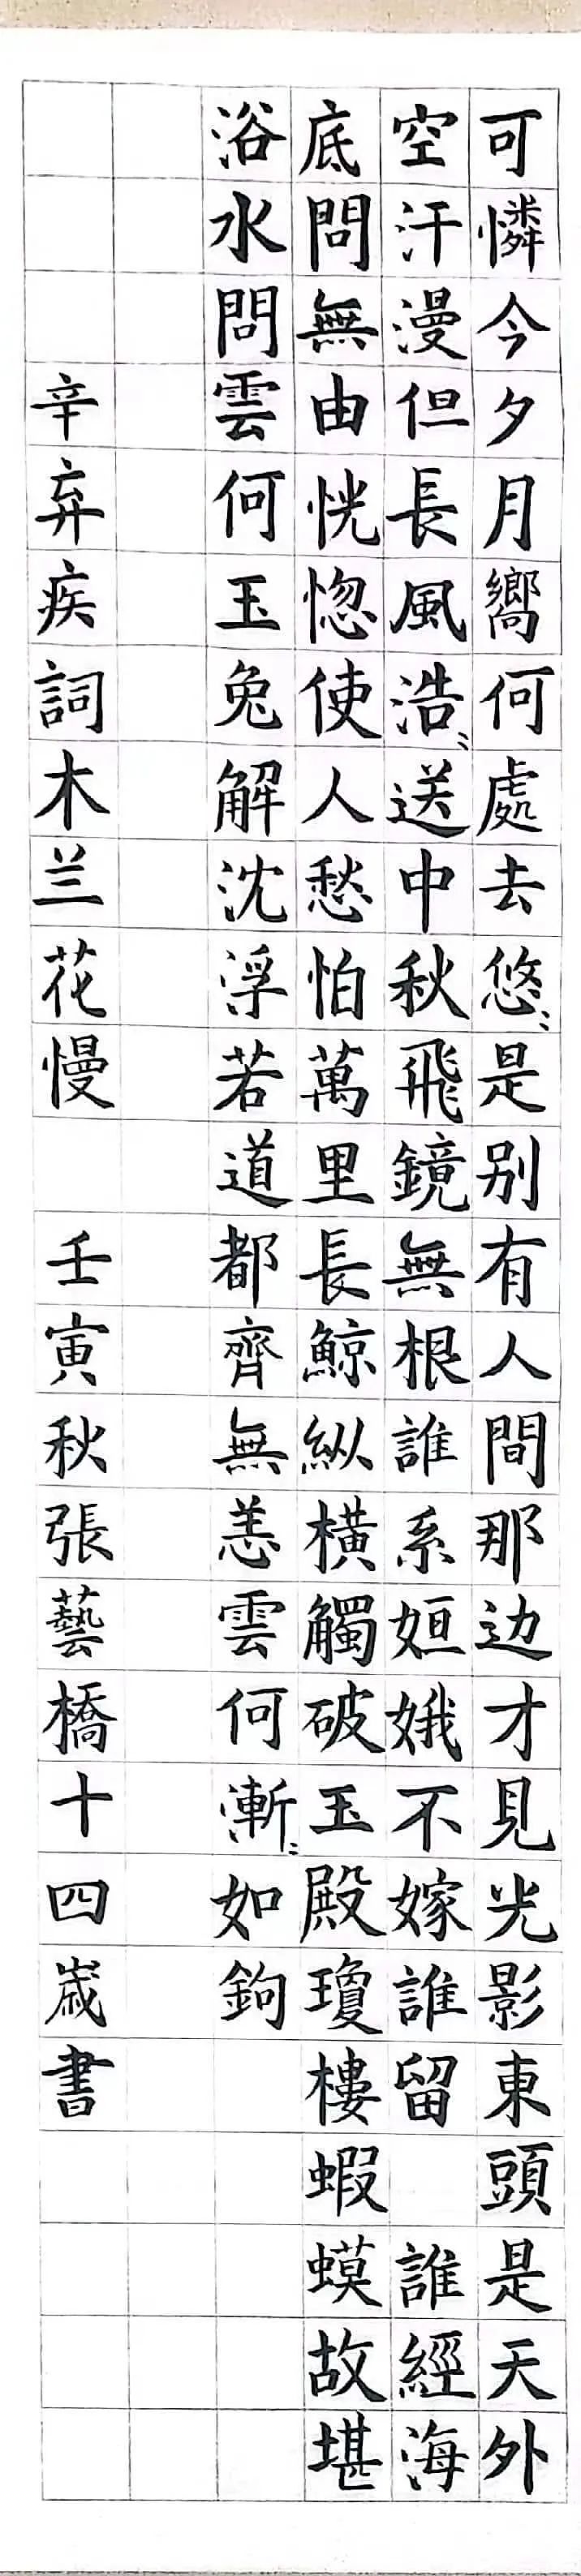 可憐今夕月嚮何處去悠〻是别有人間那边才見光影東頭是天外
空汗漫但長風浩〻送中秋飛鏡無根誰系姮娥不嫁誰留 誰經海
底問無由恍惚使人愁怕萬里長鯨纵橫觸破玉殿瓊樓蝦蟆故堪
浴水問雲何玉兔解沈浮若道都齊無恙雲何漸〻如鉤
辛弃疾詞木兰花慢 壬寅秋張藝橋十四歲書